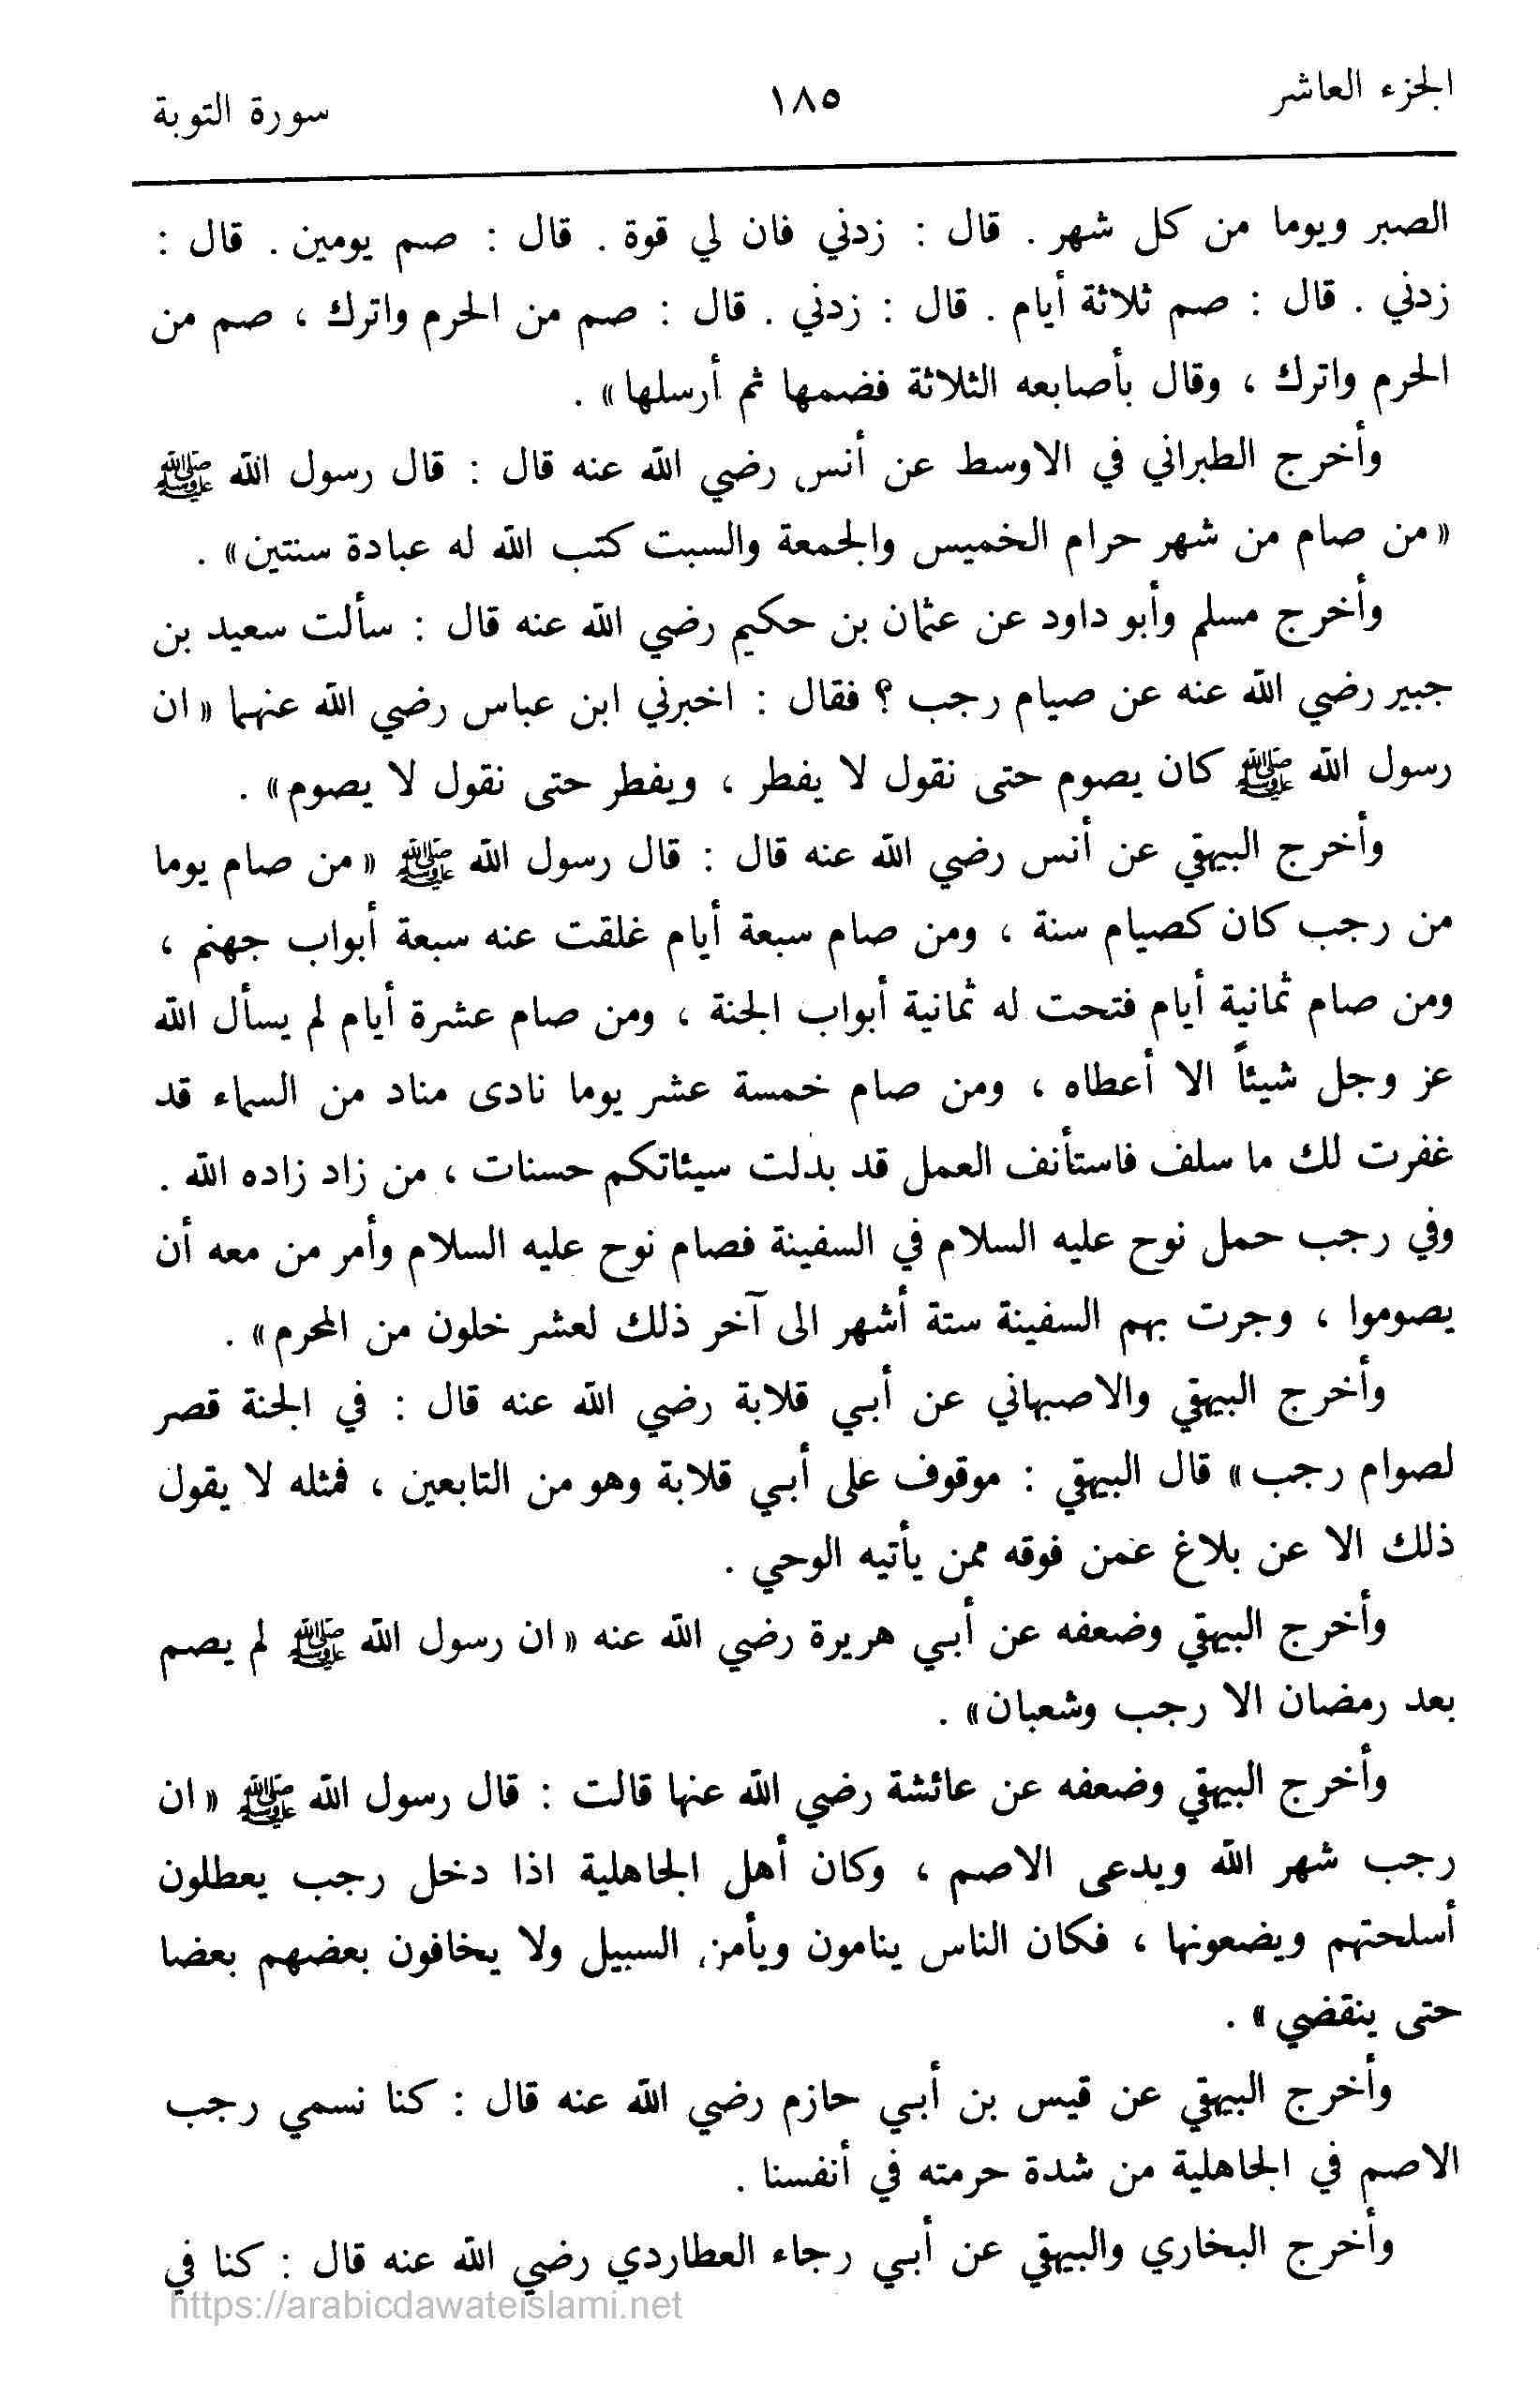 الجزء العاشر ١٨٥ سورة التوبة
الصبر ويوما من كل شهر . قال : زدني فان لي قوة . قال : صم يومين . قال :
زدني . قال : صم ثلاثة أيام . قال : زدني . قال : صم من الحرم واترك ، صم من
الحرم واترك ، وقال بأصابعه الثلاثة فضمها ثم أرسلها» .
وأخرج الطبراني في الاوسط عن أنس رضي الله عنه قال : قال رسول الله ﷺ
«من صام من شهر حرام الخميس والجمعة والسبت كتب الله له عبادة سنتين» .
وأخرج مسلم وأبو داود عن عثمان بن حكيم رضي الله عنه قال : سألت سعيد بن
جبير رضي الله عنه عن صيام رجب ؟ فقال : اخبرني ابن عباس رضي الله عنهما «ان
رسول الله ﷺ كان يصوم حتى نقول لا يفطر ، ويفطر حتى نقول لا يصوم» .
وأخرج البيهقي عن أنس رضي الله عنه قال : قال رسول الله ﷺ «من صام يوما
من رجب كان كصيام سنة ، ومن صام سبعة أيام غلقت عنه سبعة أبواب جهنم ،
ومن صام ثمانية أيام فتحت له ثمانية أبواب الجنة ، ومن صام عشرة أيام لم يسأل الله
عز وجل شيئاً الا أعطاه ، ومن صام خمسة عشر يوما نادى مناد من السماء قد
غفرت لك ما سلف فاستأنف العمل قد بدلت سيئاتكم حسنات ، من زاد زاده الله .
وفي رجب حمل نوح عليه السلام في السفينة فصام نوح عليه السلام وأمر من معه أن
يصوموا ، وجرت بهم السفينة ستة أشهر الى آخر ذلك لعشر خلون من المحرم» .
وأخرج البيهقي والاصبهاني عن أبي قلابة رضي الله عنه قال : في الجنة قصر
لصوام رجب» قال البيهقي : موقوف على أبي قلابة وهو من التابعين ، فمثله لا يقول
ذلك الا عن بلاغ عمن فوقه ممن يأتيه الوحي .
وأخرج البيهقي وضعفه عن أبي هريرة رضي الله عنه «ان رسول الله ﷺ لم يصم
بعد رمضان الا رجب وشعبان» .
وأخرج البيهقي وضعفه عن عائشة رضي الله عنها قالت : قال رسول الله ﷺ «ان
رجب شهر الله ويدعى الاصم ، وكان أهل الجاهلية اذا دخل رجب يعطلون
أسلحتهم ويضعونها ، فكان الناس ينامون ويأمن السبيل ولا يخافون بعضهم بعضا
حتى ينقضي» .
وأخرج البيهقي عن قيس بن أبي حازم رضي الله عنه قال : كنا نسمي رجب
الاصم في الجاهلية من شدة حرمته في أنفسنا .
وأخرج البخاري والبيهقي عن أبي رجاء العطاردي رضي الله عنه قال : كنا في
https://arabicdawateislami.net